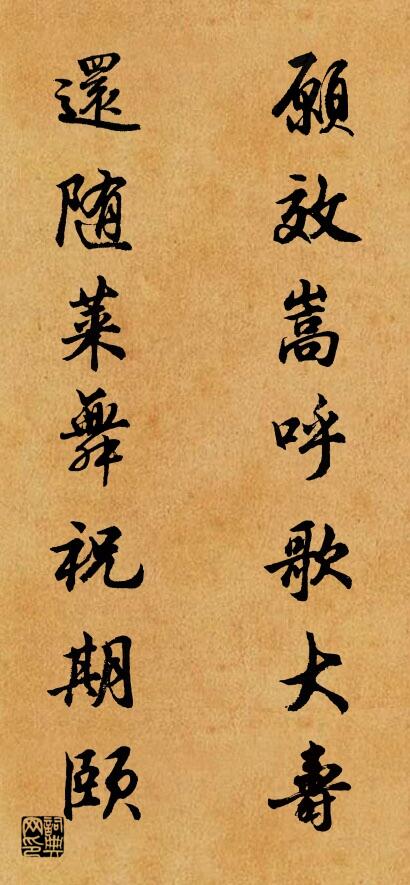 願效嵩呼歌大壽
還随萊舞祝期頤
詞典网印